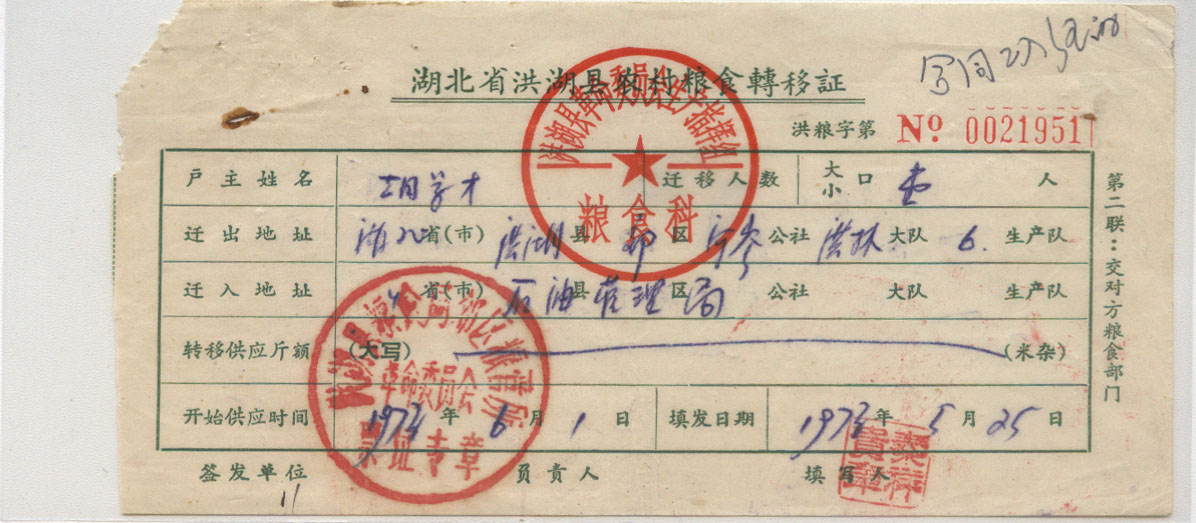 湖北省洪湖县农村粮食轉移証
洪粮字第 No 0021951
洪湖县革命委员会生产指挥组
粮食科
户主姓名 学才 迁移人数 大小口 壹 人
迁出地址 湖北省(市) 洪湖县 区 公社 洪林大队 6. 生产队
迁入地址 省(市) 县 石油管理局 区 公社 大队 生产队
转移供应斤额 (大写) (米杂)
革命委员会
票证专章
开始供应时间 1973年 6月 1日 填发日期 1973年 5月 25日
签发单位 负责人 填写人
第二联：交对方粮食部门